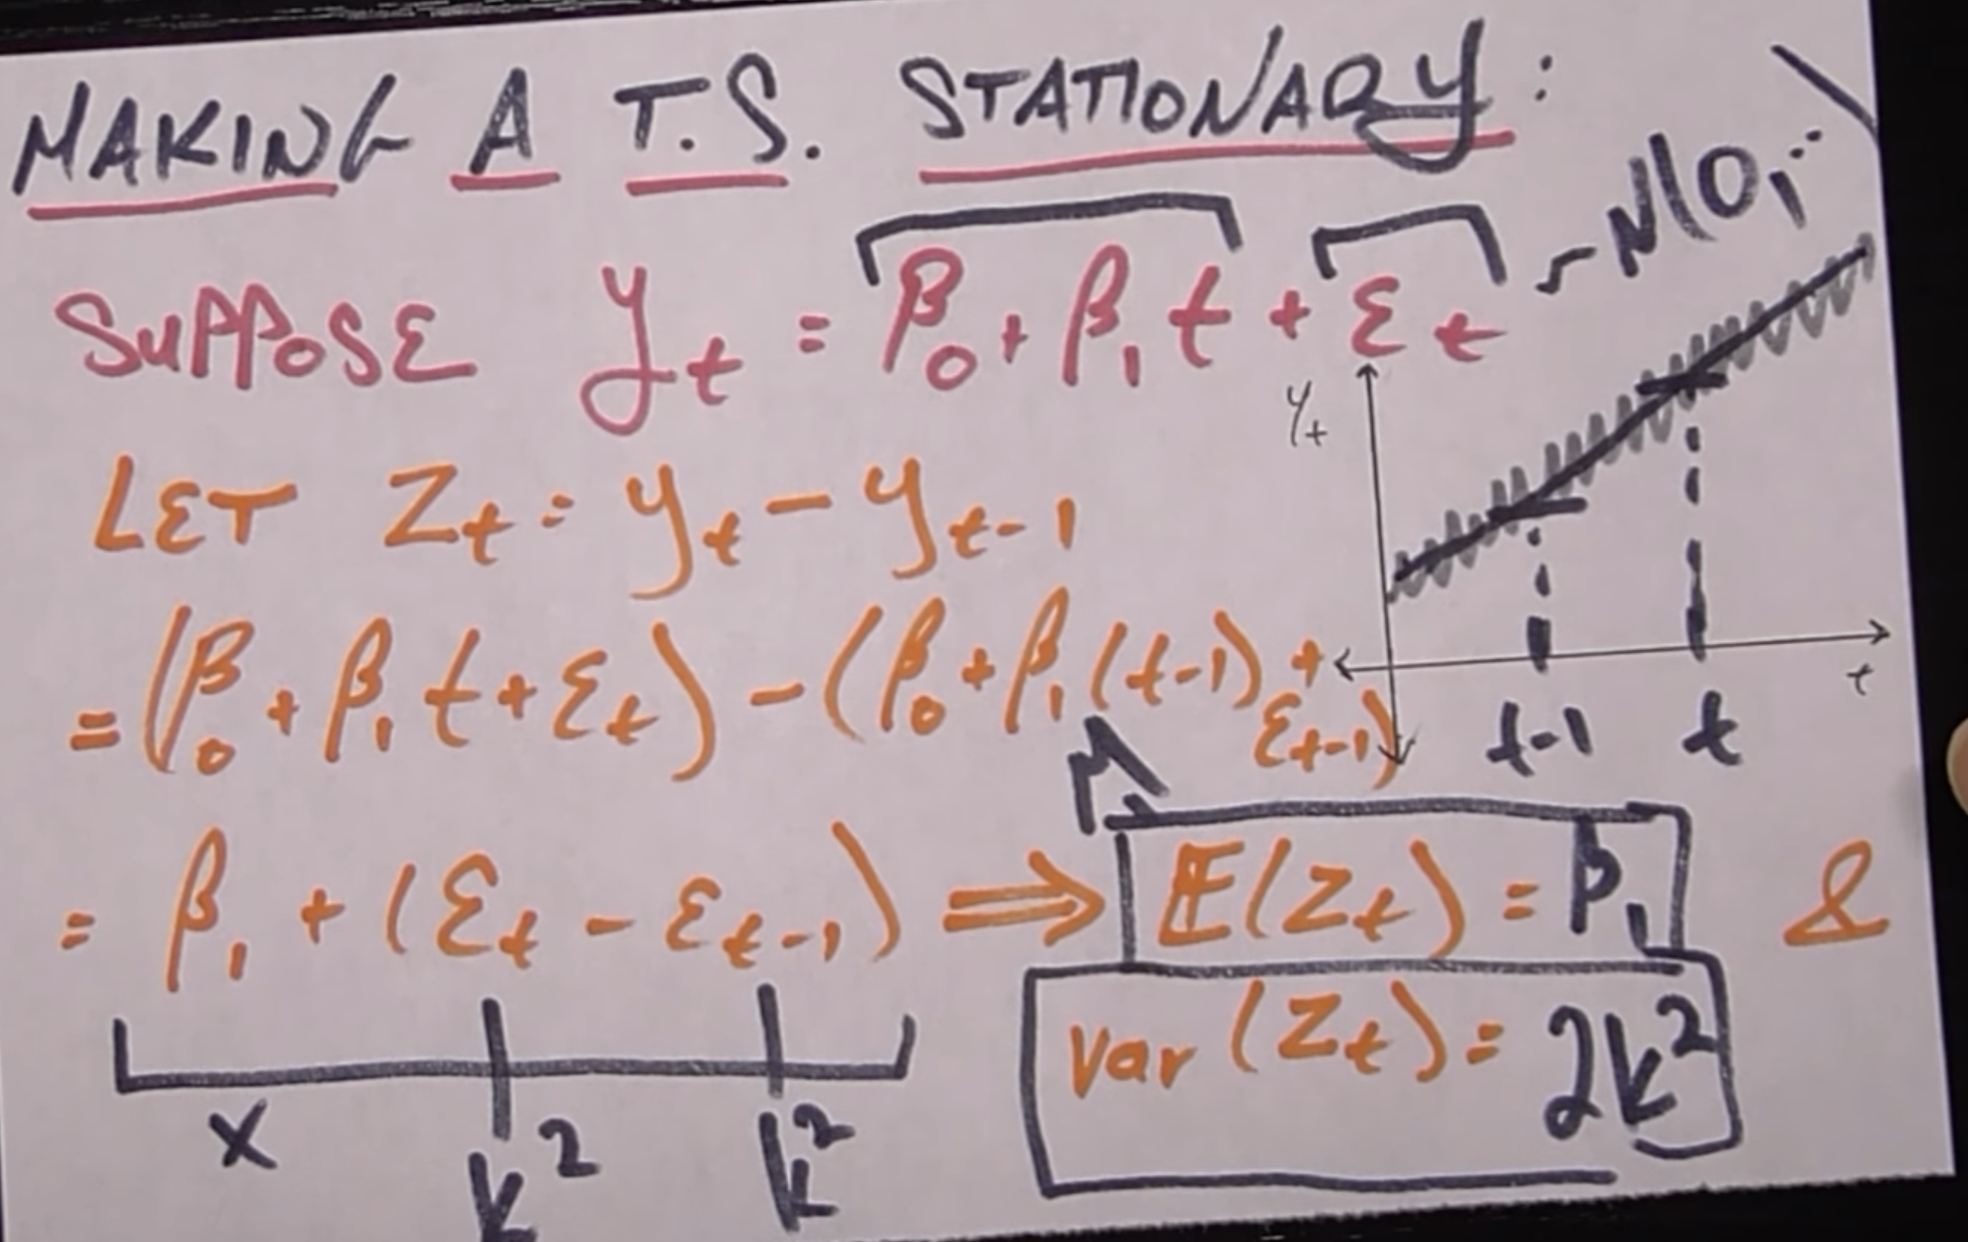 MAKING A T.S. STATIONARY:
~N(0,
SUPPOSE y_t = β_0 + β_1 t + ε_t
y_t
LET Z_t = y_t - y_{t-1}
= (β_0 + β_1 t + ε_t) - (β_0 + β_1 (t-1) + ε_{t-1})
t
t-1 t
= β_1 + (ε_t - ε_{t-1}) ⟹ E(Z_t) = β_1 &
Var(Z_t) = 2k²
x k² k²